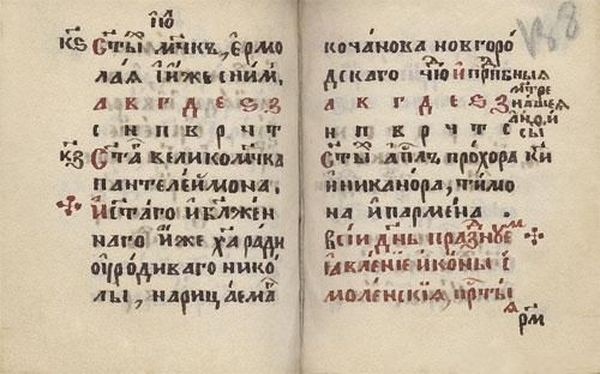 і҆ю
к҃ѕ Ст҃ы мч҃къ, єрмо
лая і҆ иже с ним.
а к г д е ѕ з
с н п в р ч т
к҃з Ст҃а великомч҃ка
пантелеймона.
И ст҃аго и блж҃ен
наго иже ха ради
оуродиваго нико
лы, нарицаема
кочанова новгоро
дскаго чю и прпбныя
мтре
нашея
анѳи
сы
а к г д е ѕ з
с н п в р ч т с
Ст҃ы апл҃ъ прохора ки
и никанора, тимо
на и пармена.
Всїи дн҃ь празнуем
ꙗвленїе иконы ї
моленскїя, пр҃ты
я
рм